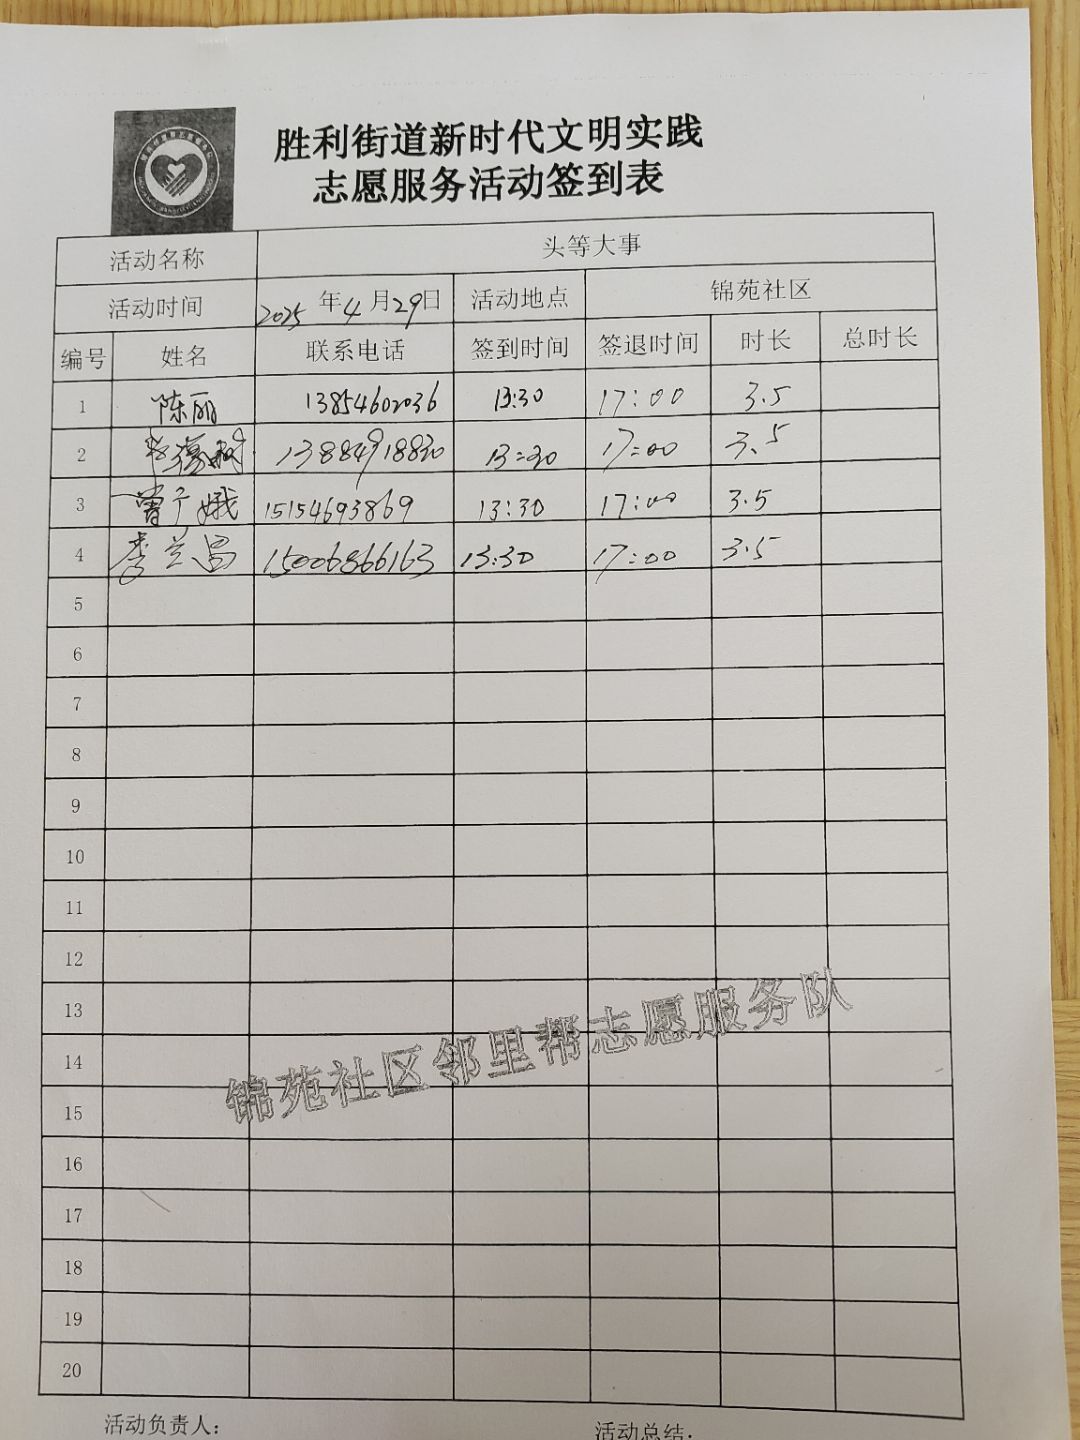 胜利街道新时代文明实践
志愿服务活动签到表
活动名称 头等大事
活动时间 2025年4月29日 活动地点 锦苑社区
编号 姓名 联系电话 签到时间 签退时间 时长 总时长
1 陈丽 13854602036 13:30 17:00 3.5
2 13884918830 13:30 17:00 3.5
3 曾广娥 15154693869 13:30 17:00 3.5
4 李兰昌 15006866163 13:30 17:00 3.5
5
6
7
8
9
10
11
12
13
14
15
16
17
18
19
20
锦苑社区邻里帮志愿服务队
活动负责人: 活动总结: